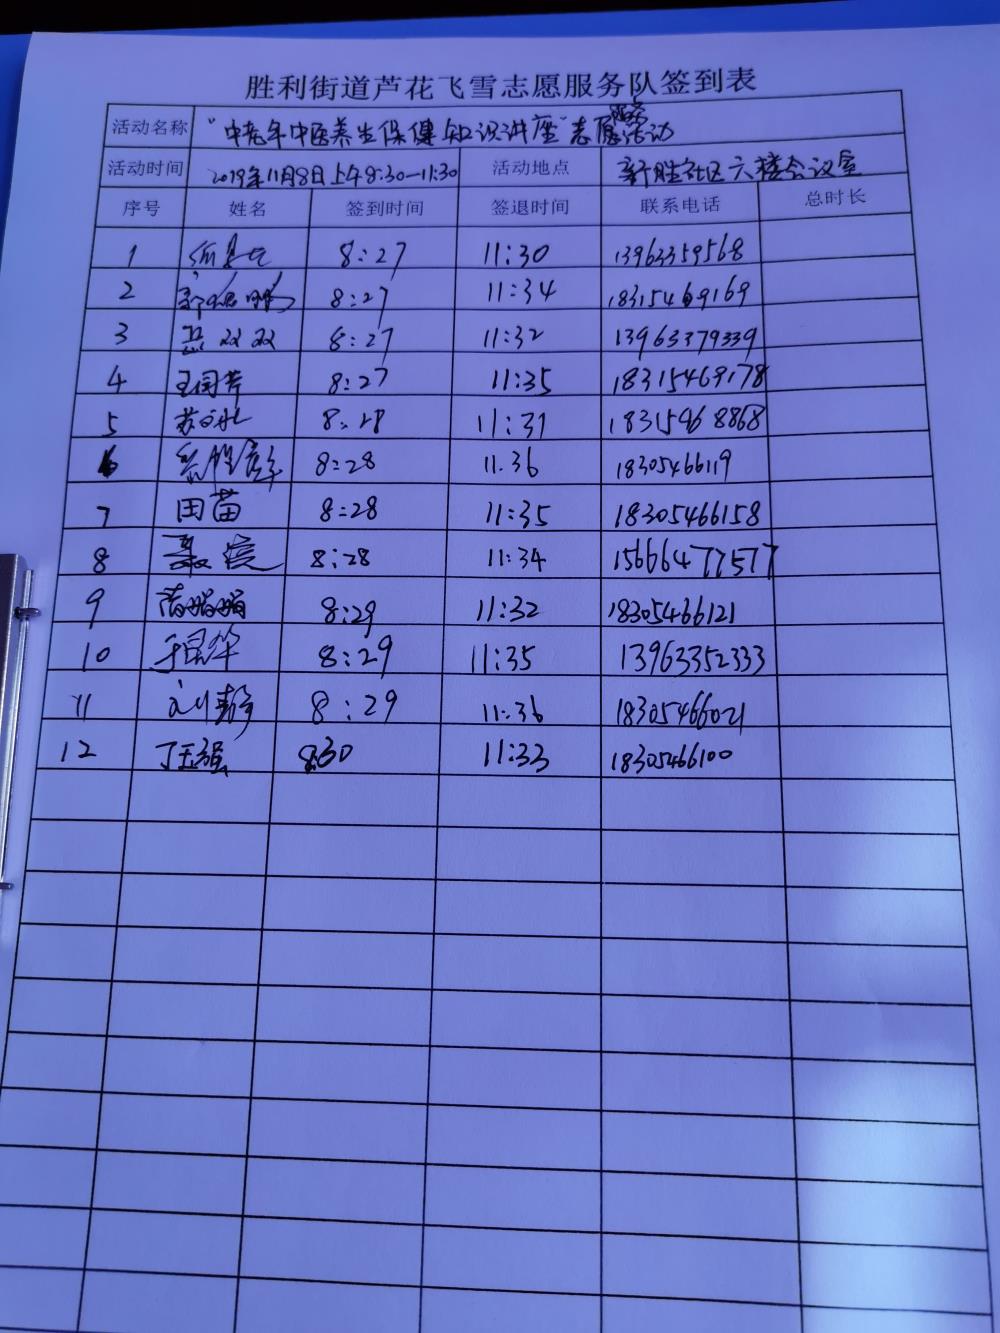 胜利街道芦花飞雪志愿服务队签到表
活动名称 "中老年中医养生保健知识讲座"志愿服务活动
活动时间 2019年11月8日上午8:30—11:30 活动地点 新胜社区六楼会议室
序号 姓名 签到时间 签退时间 联系电话 总时长
1 8:27 11:30 13963359568
2 8:27 11:34 18315469169
3 双双 8:27 11:32 13963379339
4 8:27 11:35 18315469178
5 8:28 11:31 18315468868
6 8:28 11.36 18305466119
7 田苗 8:28 11:35 18305466158
8 8:28 11:34 15666477577
9 8:29 11:32 18305466121
10 8:29 11:35 13963352333
11 刘静 8:29 11:36 18305466021
12 丁玉强 8:30 11:33 18305466100